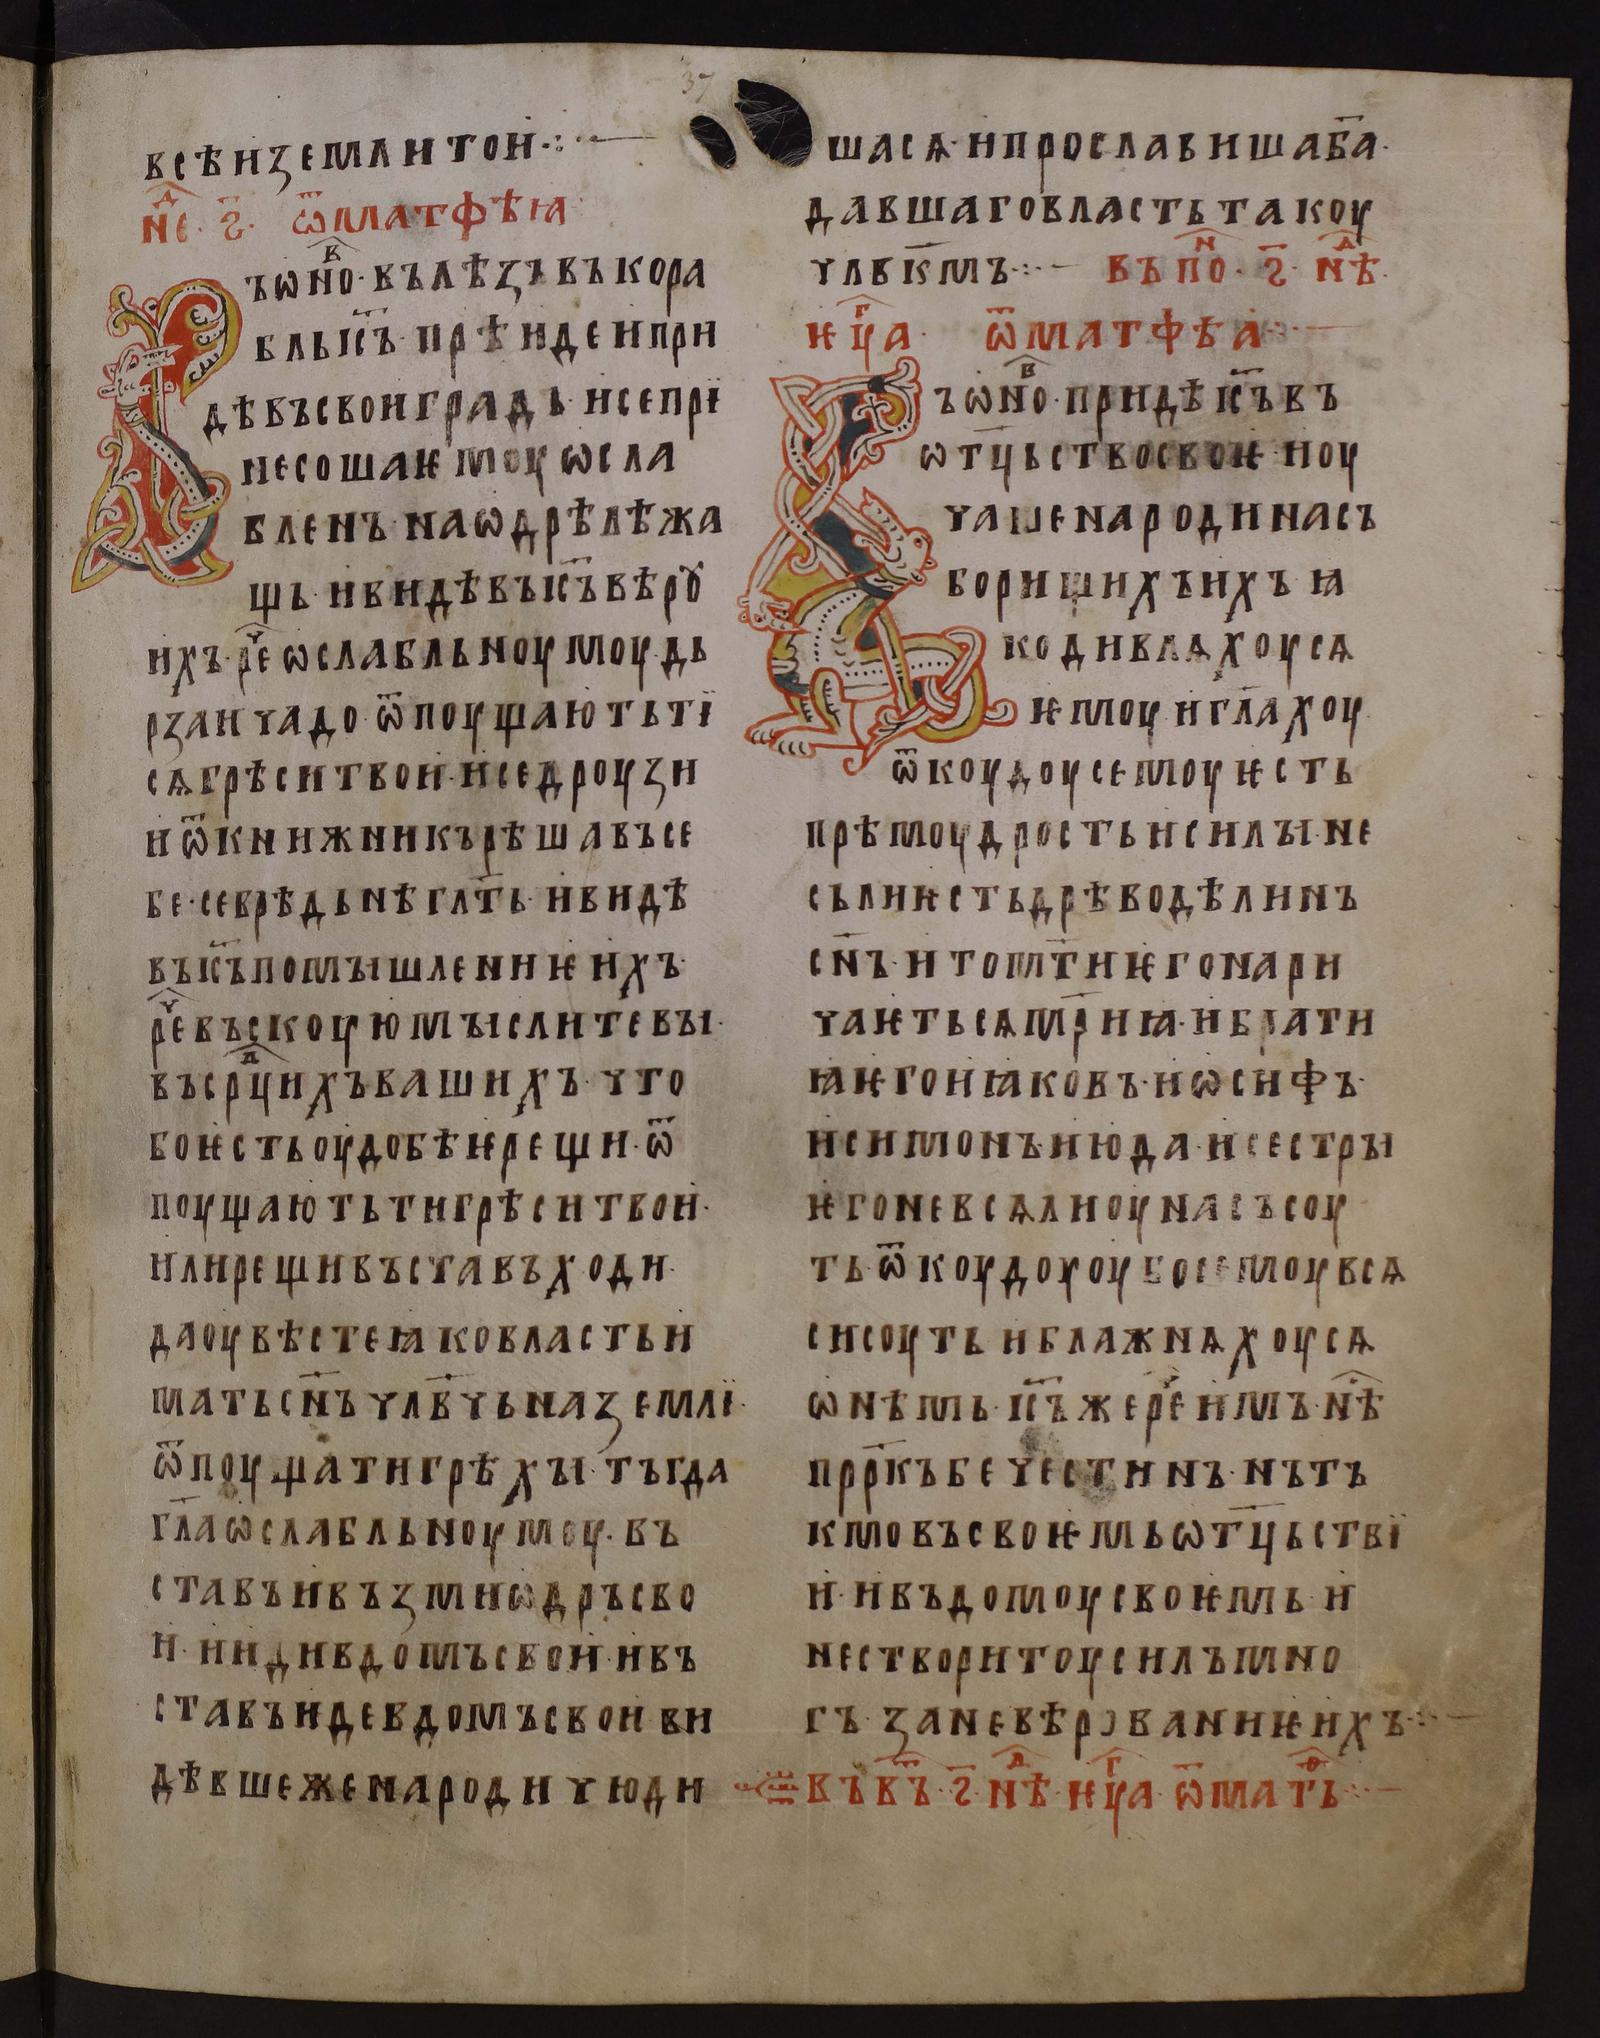 37
всѣи земли тои·:·
не҃д · ѕ҃ · ѿ матѳѣꙗ
Въ ѡно҃в · вълѣзъ въ кора
бль і҃с҃ъ прѣиде и при
дѣ въ свои градъ · и се прї
несоша ѥмоу ѡсла
бленъ на ѡдрѣ лѣжа
щь · и видѣвъ і҃с҃ъ вѣрꙋ
ихъ · ре҃ч ѡслабльноумоу дь
рзаи чадо · ѿпоущають тї
сѧ грѣси твои · и се дроузи
и ѿ книжникъ рѣша въ се
бе · се врѣдьнѣ гл҃ть · и видѣ
въ і҃с҃ъ помꙑшлениѥ ихъ
ре҃ч въскоую мꙑслите вꙑ ·
въ ср҃дцихъ вашихъ что
бо ѥсть оудобѣѥ рещи · ѿ
поущають ти грѣси твои ·
или рещи въставъ ходи ·
да оувѣсте ꙗко власть и
мать сн҃ъ чл҃вчь на землї ·
ѿпоущати грѣхꙑ · тъгда
гл҃а ѡслабльноумоу · въ
ставъ и възми ѡдръ сво
и · и иди в домъ свои · и въ
ставъ иде в домъ свои ви
дѣвше же народи чюди
шасѧ · и прославиша б҃а ·
давшаго власть такоу
чл҃вкмъ ·:· въ по҃н · ѕ҃ · нѣ҃д ·
ѥц҃га · ѿ матфѣа ·:·
Въ ѡно҃в · приде і҃с҃ъ въ
ѡтц҃ьство своѥ · и оу
чаше народи на съ
борищихъ ихъ ꙗ
ко дивлѧхоусѧ
ѥмоу и гл҃ахоу
ѿкоудоу семоу ѥсть
прѣмоудрость и силꙑ · не
сь ли ѥсть дрѣводѣлинъ
сн҃ъ · и то мт҃и ѥго нари
чаѥтьсѧ мр҃иꙗ · и брати
ꙗ ѥго иꙗковъ · и ѡсифъ ·
и симонъ · и юда · и сестрꙑ
ѥго не всѧ ли оу насъ соу
ть · ѿкоудоу оубо семоу всѧ
си соуть и блажнѧхоусѧ
ѡ нѣмь · і҃с҃ъ же ре҃ч имъ · нѣ҃с
прр҃къ бечестинъ · нътъ
кмо въ своѥмь ѡтц҃ьствї
и · и въ домоу своѥмь · и
не створи тоу силъ мно
гъ · за неверованиѥ ихъ ·:·
въ в҃т҃ъ · ѕ҃ · нѣ҃д · ѥц҃га · ѿ мат҃ѳь ·:·